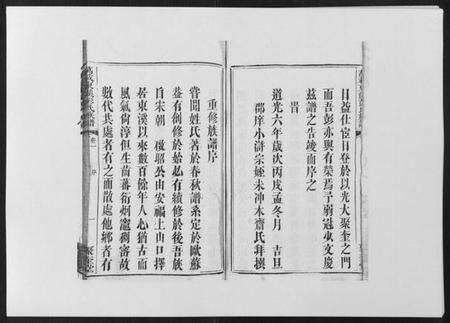 目益仕宦日登於以光大聚奎之門
而吾彭亦與有榮焉予弱冠以文慶
茲譜之告竣而序之
旹
道光六年歲次丙戌孟冬月 吉旦
郡庠小滸宗姪未沖本齋氏拜撰
重修族譜序
嘗聞姓氏著於春秋譜系定於歐蘇
益有創修於始必有續修於後吾族
自宋朝 啟昭公由安福土山口擇
居東溪以來數百餘年人心猶古而
風氣尚淳但生茵蕃衍烟竈稠密故
數代共處者有之而散處他鄉者有
卷一 序 一